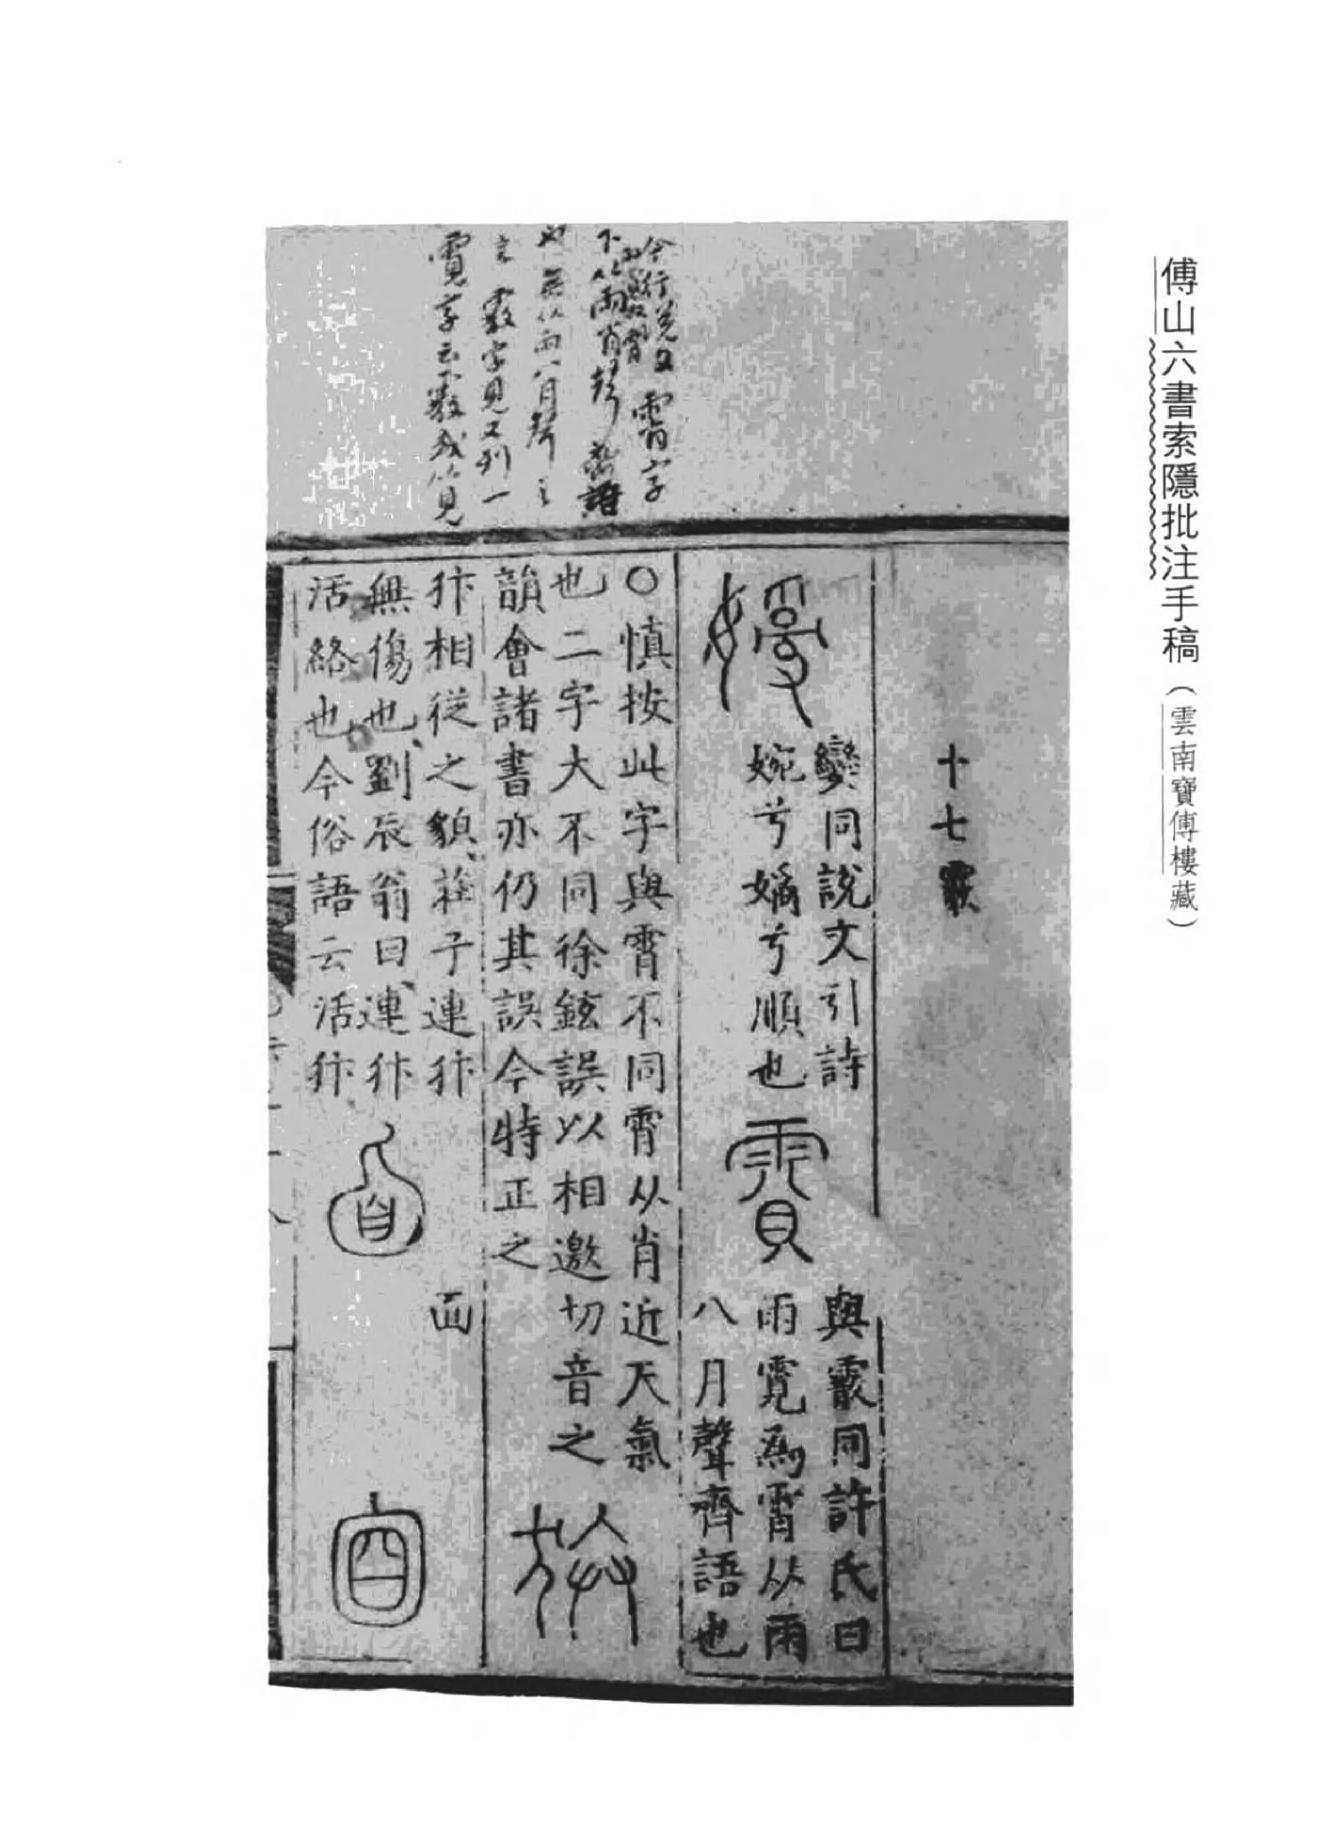 傅山六書索隱批注手稿（雲南寶傅樓藏）
今行說文霄字
下从雨肖聲齊語
也無从雨八月聲之
言霰字見又列一
霣字云霰或从見
十七霰
孌同說文引詩
婉兮嬌兮順也
與霰同許氏曰
雨霓為霄从雨
八月聲齊語也
○慎按此字與霄不同霄从肖近天氣
也二字大不同徐鉉誤以相邀切音之
韻會諸書亦仍其誤今特正之
犿相從之貌莊子連犿
無傷也劉辰翁曰連犿
活絡也今俗語云活犿
面